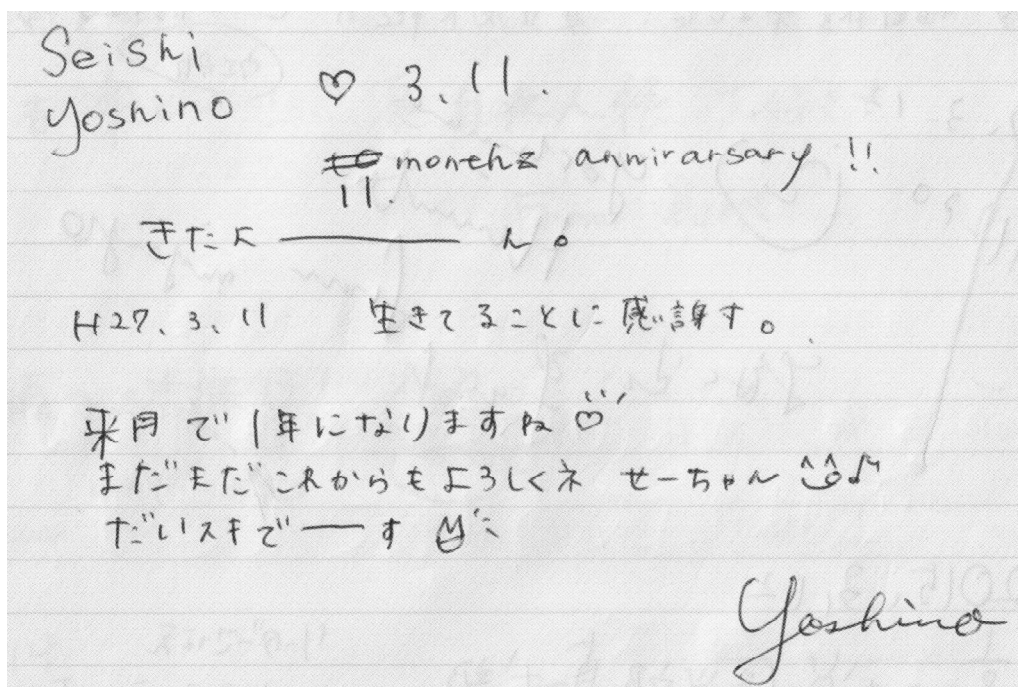 Seishi
Yoshino
♡ 3.11.
10 monthz annirarsary !!
11.
きたよ――――ん。
H27.3.11 生きてることに感謝す。
来月で1年になりますね♡
まだまだこれからもよろしくネ せーちゃん ♪
だいスキで――す
Yoshino